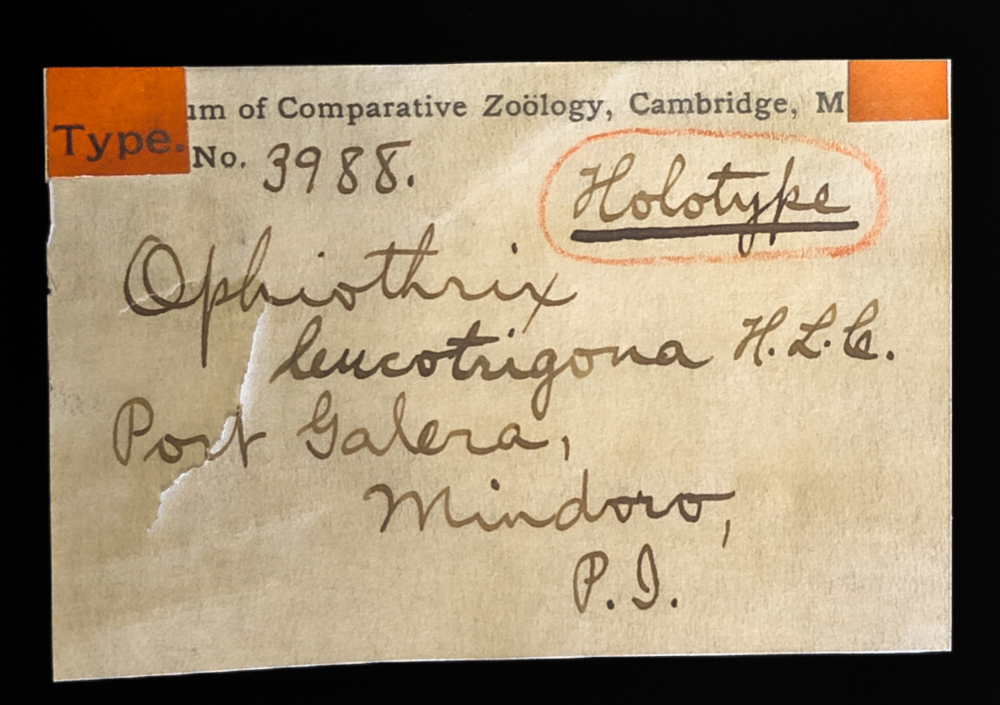 um of Comparative Zoölogy, Cambridge, M
Type. No. 3988.
Holotype
Ophiothrix
leucotrigona H.L.C.
Port Galera,
Mindoro,
P.I.